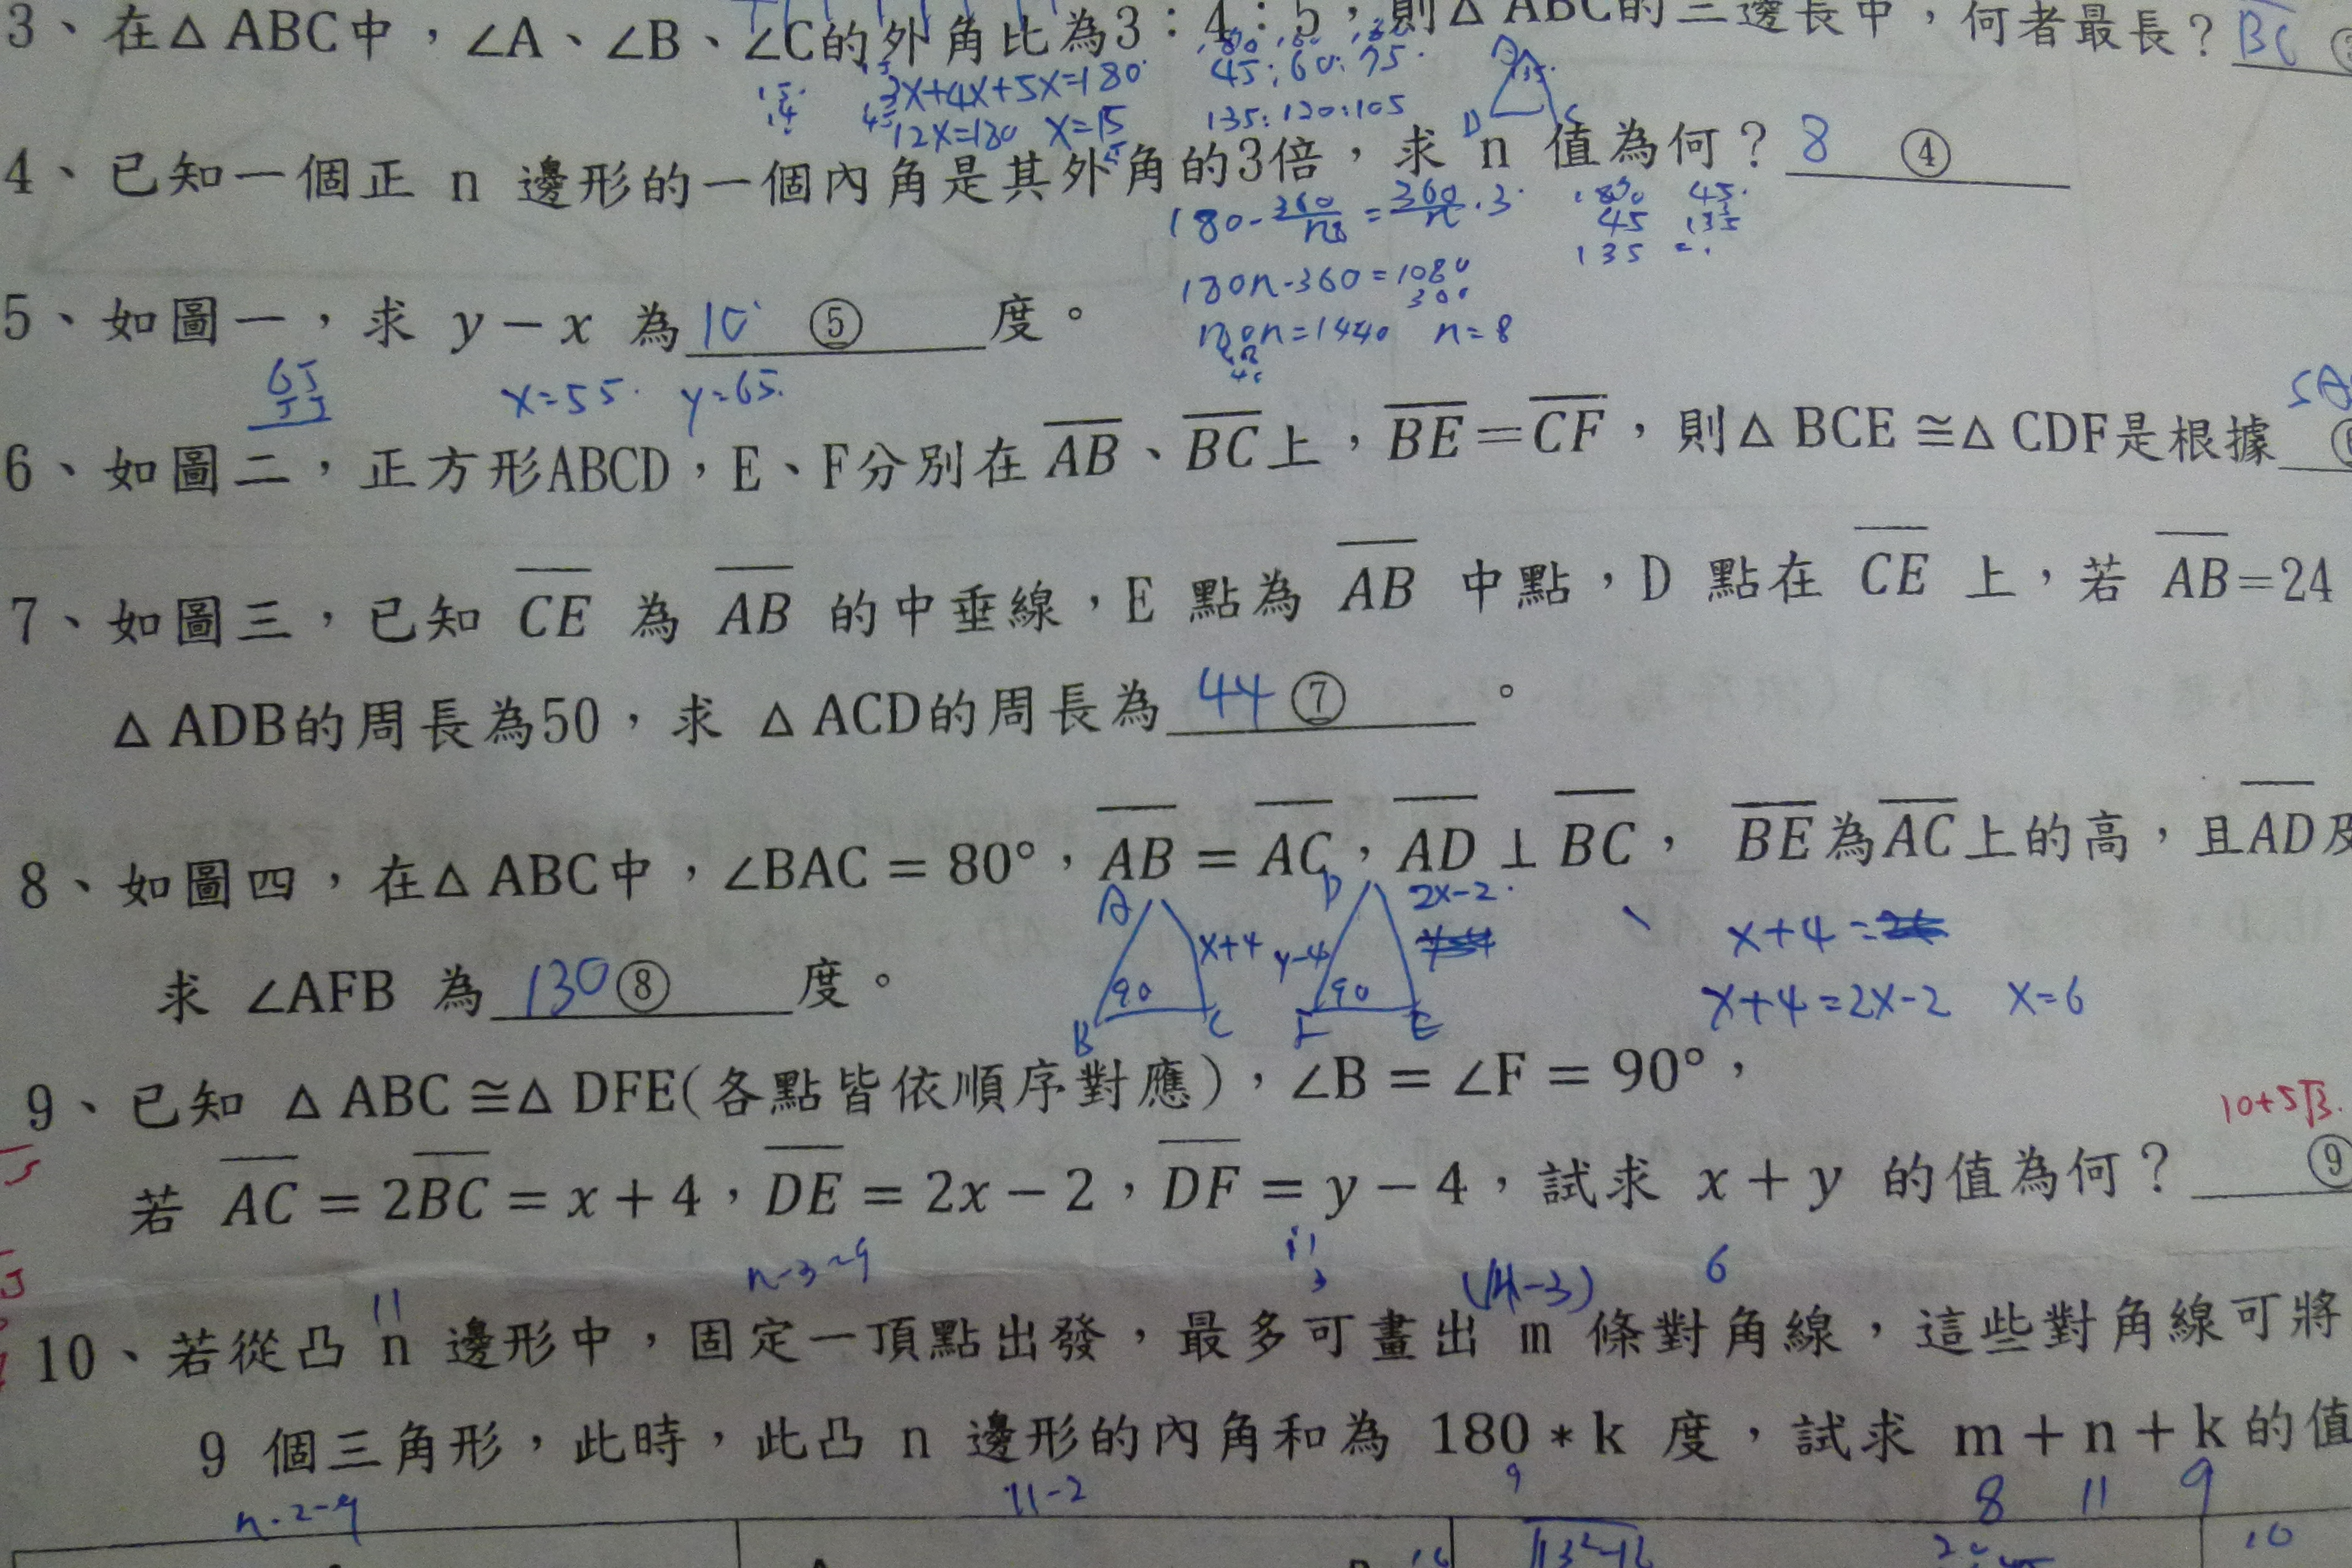 3、在△ABC中，∠A、∠B、∠C的外角比為3：4：5，則△ABC的三邊長中，何者最長？BC
3x+4x+5x=180 45:60:75
12x=180 x=15 135:120:105
4、已知一個正 n 邊形的一個內角是其外角的3倍，求 n 值為何？8 ④
180-360/n=360/n·3 180 45
45 135
135
180n-360=1080
5、如圖一，求 y－x 為 10 ⑤ 度。
180n=1440 n=8
65
55 x=55 y=65
6、如圖二，正方形ABCD，E、F分別在 AB、BC上，BE=CF，則△BCE≅△CDF是根據
7、如圖三，已知 CE 為 AB 的中垂線，E 點為 AB 中點，D 點在 CE 上，若 AB=24
△ADB的周長為50，求 △ACD的周長為 44 ⑦ 。
8、如圖四，在△ABC中，∠BAC = 80°，AB = AC，AD⊥BC， BE為AC上的高，且AD及
A D 2x-2
x+4 y-4 x+4=
求 ∠AFB 為 130 ⑧ 度。 90 90 x+4=2x-2 x=6
B C F E
9、已知 △ABC≅△DFE(各點皆依順序對應)，∠B = ∠F = 90°，
10+5√3
若 AC = 2BC = x + 4，DE = 2x − 2，DF = y − 4，試求 x + y 的值為何？ ⑨
n-3 11 (11-3) 6
10、若從凸 n 邊形中，固定一頂點出發，最多可畫出 m 條對角線，這些對角線可將
9 個三角形，此時，此凸 n 邊形的內角和為 180＊k 度，試求 m＋n＋k的值
n-2=9 11-2 9 8 11 9
10